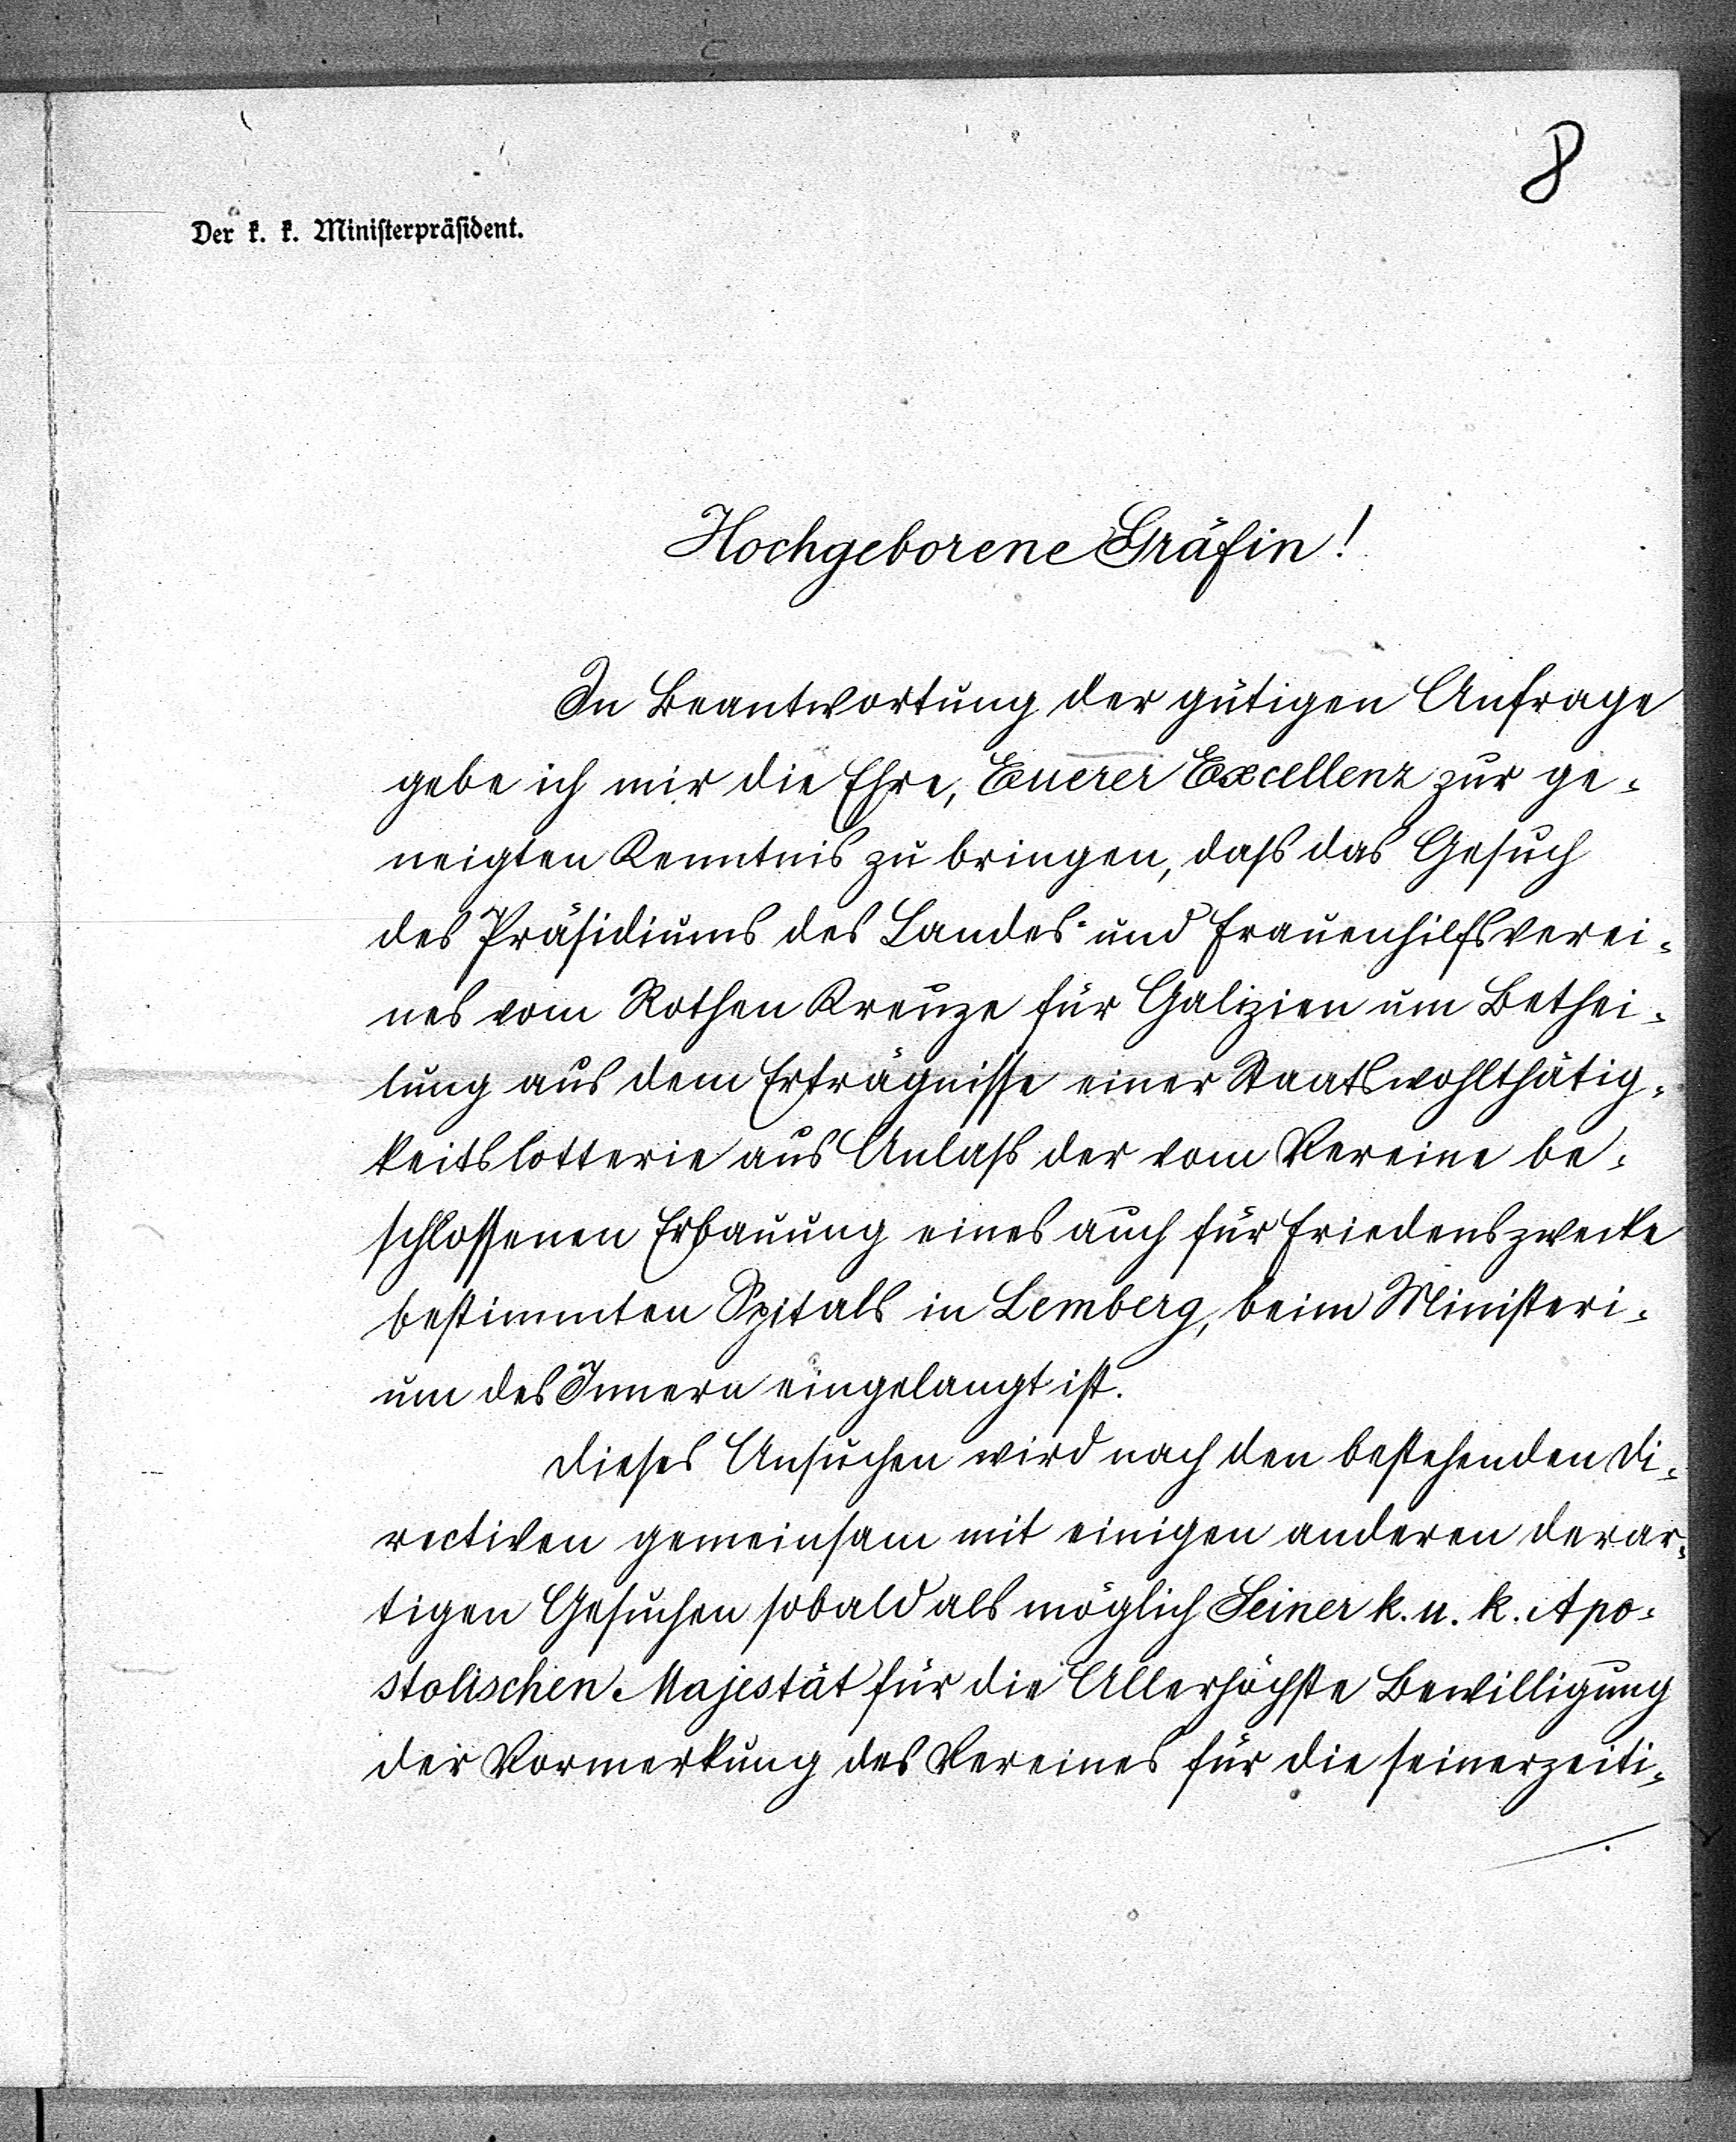 8
Der k. k. Ministerpräsident.
Hochgeborene Gräfin!
In Beantwortung der gütigen Anfrage
gebe ich mir die Ehre, Euerer Excellenz zur ge-
neigten Kenntnis zu bringen, daß das Gesuch
des Präsidiums des Landes- und Frauenhilfsverei-
nes vom Rothen Kreuze für Galizien um Bethei-
lung aus dem Erträgnisse einer Staatswohlthätig-
keitslotterie aus Anlaß der vom Vereine be-
schlossenen Erbauung eines auch für Friedenszwecke
bestimmten Spitals in Lemberg, beim Ministeri-
um des Innern eingelangt ist.
Dieses Ansuchen wird nach den bestehenden Di-
rectiven gemeinsam mit einigen anderen derar-
tigen Gesuchen sobald als möglich Seiner k. u. k. Apo-
stolischen Majestät für die Allerhöchste Bewilligung
der Vormerkung des Vereines für die seinerzeiti-